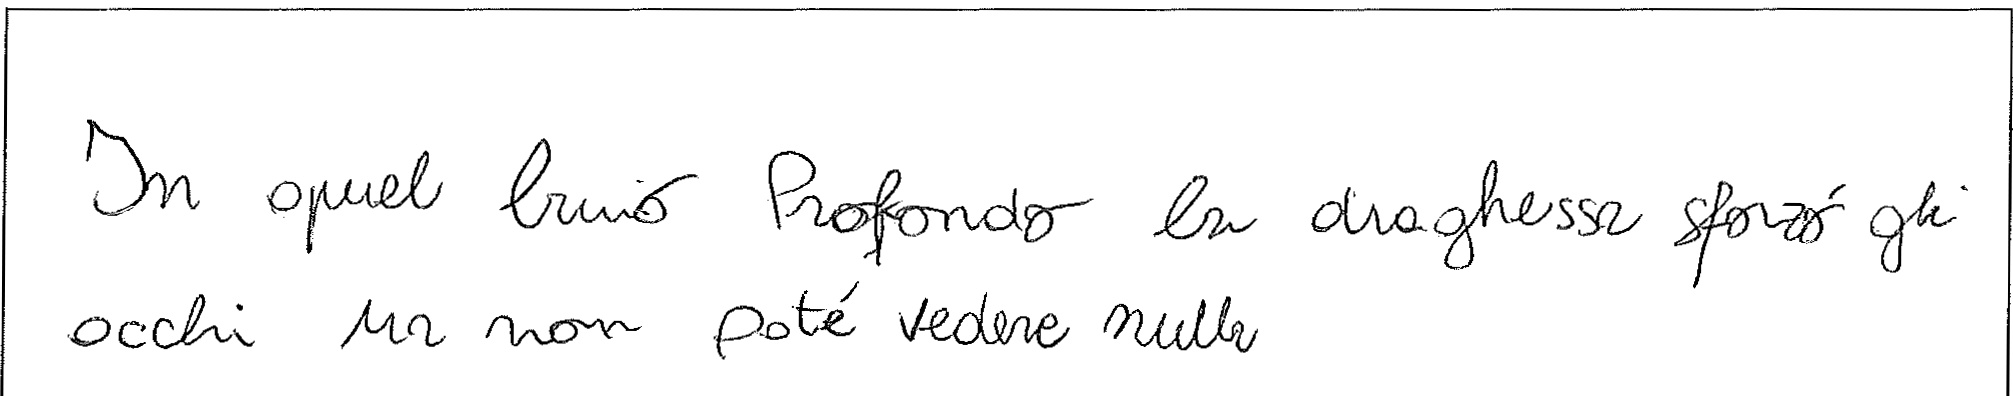 In quel buio Profondo la draghessa sforzó gli
occhi ma non poté vedere nulla